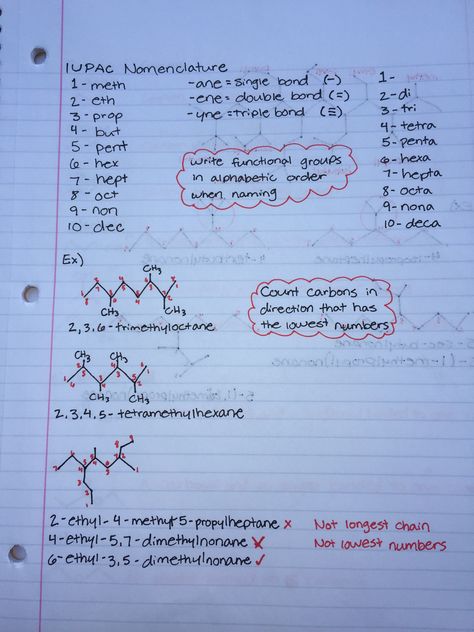 IUPAC Nomenclature
1 - meth
2 - eth
3 - prop
4 - but
5 - pent
6 - hex
7 - hept
8 - oct
9 - non
10 - dec
-ane = single bond (-)
-ene = double bond (=)
-yne = triple bond (≡)
1-
2-di
3-tri
4-tetra
5-penta
6-hexa
7-hepta
8-octa
9-nona
10-deca
Write functional groups
in alphabetic order
when naming
Ex)
CH3
CH3
CH3
2,3,6-trimethyloctane
Count carbons in
direction that has
the lowest numbers
CH3
CH3
CH3
CH3
2,3,4,5-tetramethylhexane
2-ethyl-4-methyl-5-propylheptane x Not longest chain
4-ethyl-5,7-dimethylnonane x Not lowest numbers
6-ethyl-3,5-dimethylnonane ✓